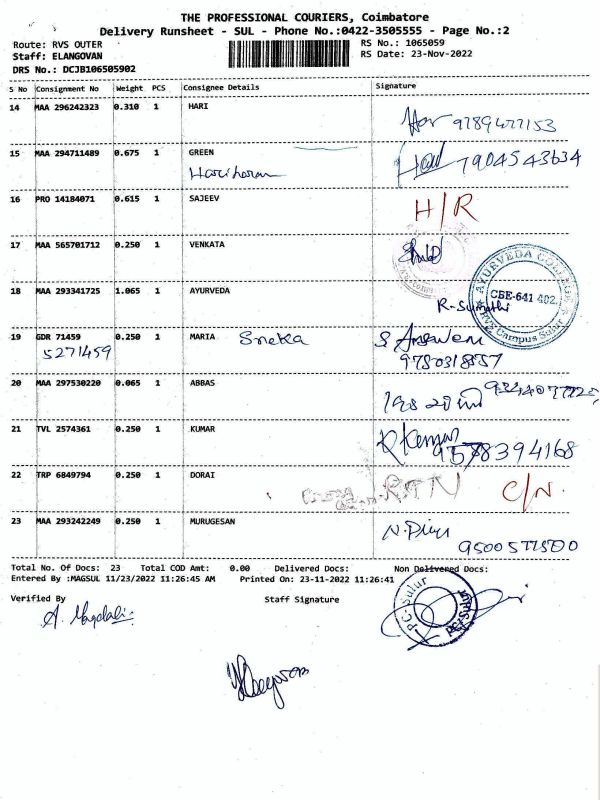 THE PROFESSIONAL COURIERS, Coimbatore
Delivery Runsheet - SUL - Phone No.:0422-3505555 - Page No.:2
Route: RVS OUTER RS No.: 1065059
Staff: ELANGOVAN RS Date: 23-Nov-2022
DRS No.: DCJB106505902
S No Consignment No Weight PCS Consignee Details Signature
14 MAA 296242323 0.310 1 HARI
15 MAA 294711489 0.675 1 GREEN
Hariharan 7904543634
16 PRO 14184071 0.615 1 SAJEEV H/R
17 MAA 565701712 0.250 1 VENKATA
AYURVEDA COLLEGE
CBE-641 402.
RVS Campus Sulur
18 MAA 293341725 1.065 1 AYURVEDA
R-Sumathi
19 GDR 71459 0.250 1 MARIA Sneka
5271459
20 MAA 297530220 0.065 1 ABBAS
21 TVL 2574361 0.250 1 KUMAR
9578394168
22 TRP 6849794 0.250 1 DORAI RTN C/N.
23 MAA 293242249 0.250 1 MURUGESAN
9500577500
Total No. Of Docs: 23 Total COD Amt: 0.00 Delivered Docs: Non Delivered Docs:
Entered By :MAGSUL 11/23/2022 11:26:45 AM Printed On: 23-11-2022 11:26:41
Verified By Staff Signature
PC-Sulur
PC-Sulur